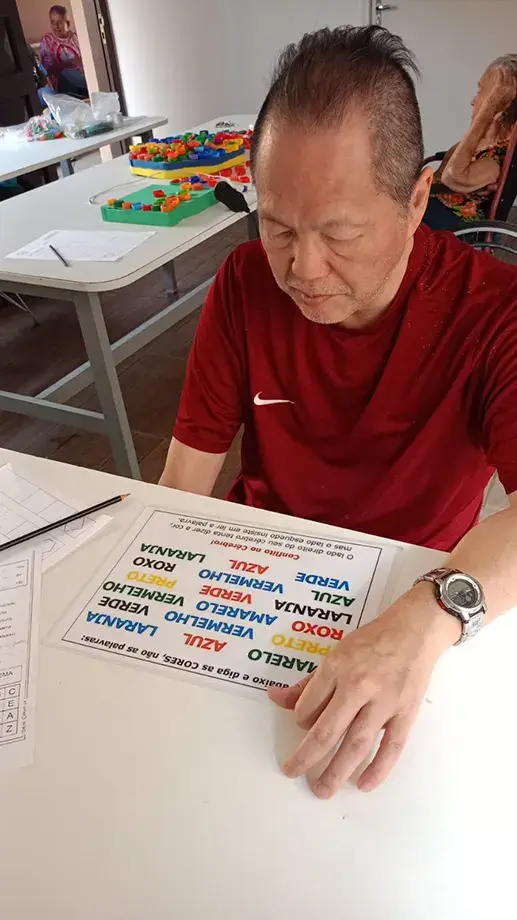 abaixo e diga as CORES, não as palavras:
AMARELO AZUL LARANJA
PRETO VERMELHO VERDE
ROXO AMARELO VERMELHO
LARANJA VERDE PRETO
AZUL VERMELHO ROXO
VERDE AZUL LARANJA
Conflito no Cérebro!
O lado direito do seu cérebro tenta dizer a cor,
mas o lado esquedo insiste em ler a palavra.